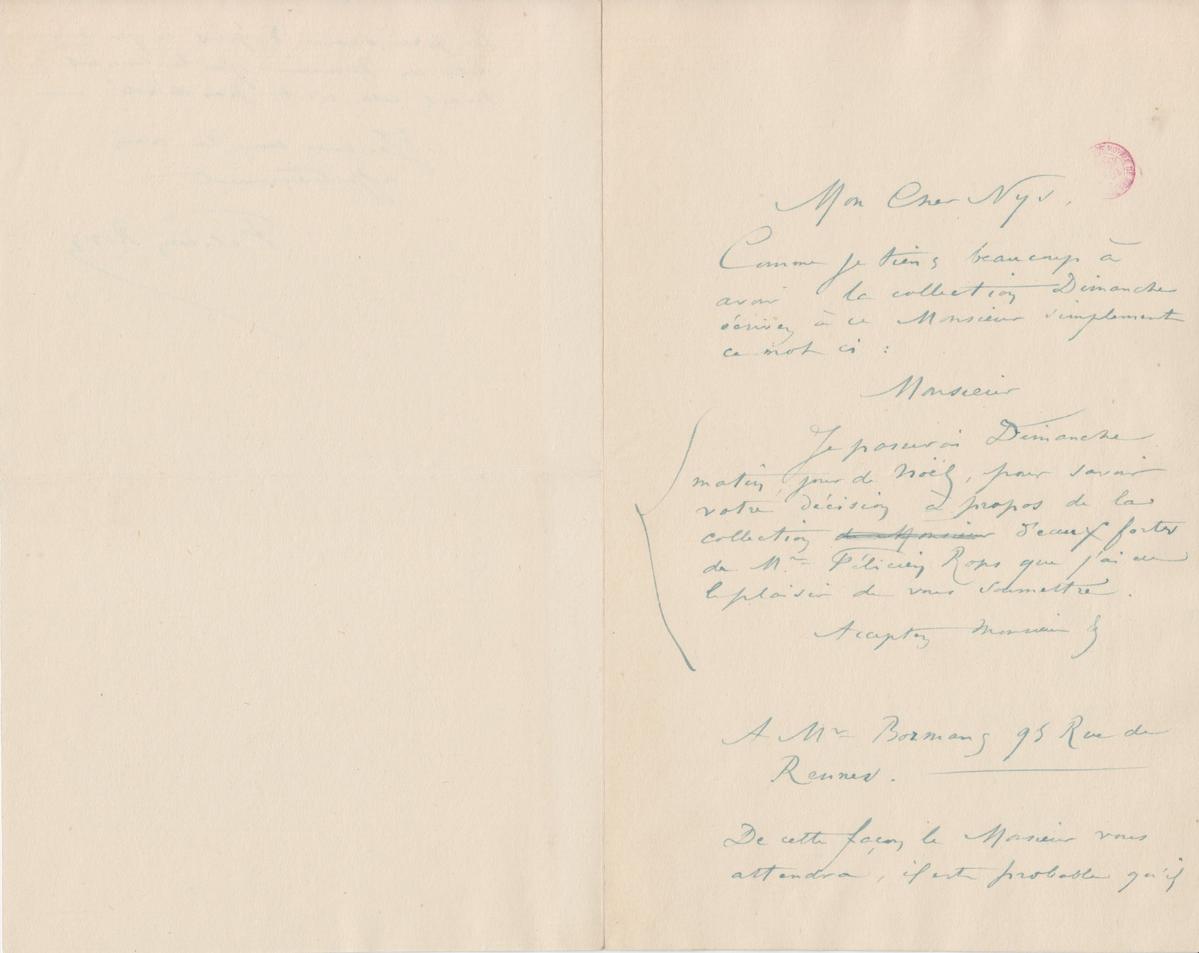 Mon Cher Nys,
Comme je tiens beaucoup à
avoir la collection Dimanche
écrivez à ce Monsieur simplement
ce mot ci :
Monsieur
Je passerai Dimanche
matin, jour de Noël, pour savoir
votre décision à propos de la
collection de Monsieur d'eaux fortes
de Mr Félicien Rops que j'ai eu
le plaisir de vous soumettre.
Acceptez Monsieur &
A Mr Bormans 95 Rue de
Rennes.
De cette façon le Monsieur vous
attendra, il est probable qu'il